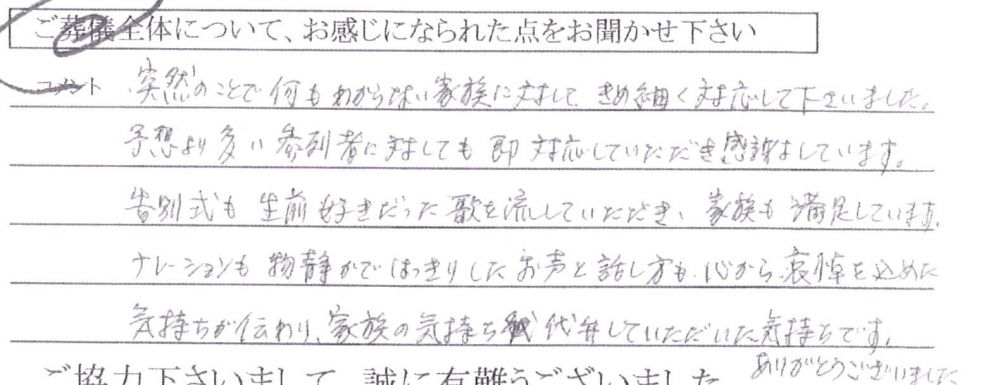 ご葬儀全体について、お感じになられた点をお聞かせ下さい
コメント 突然のことで何もわからない家族に対して きめ細く対応して下さいました。
予想より多い参列者に対しても即対応していただき感謝しています。
告別式も生前好きだった歌を流していただき、家族も満足しています。
ナレーションも物静かではっきりしたお声と話し方も、心から哀悼を込めた
気持ちが伝わり、家族の気持ち 代弁していただいた気持ちです。
ありがとうございました
ご協力下さいまして、誠に有難うございました